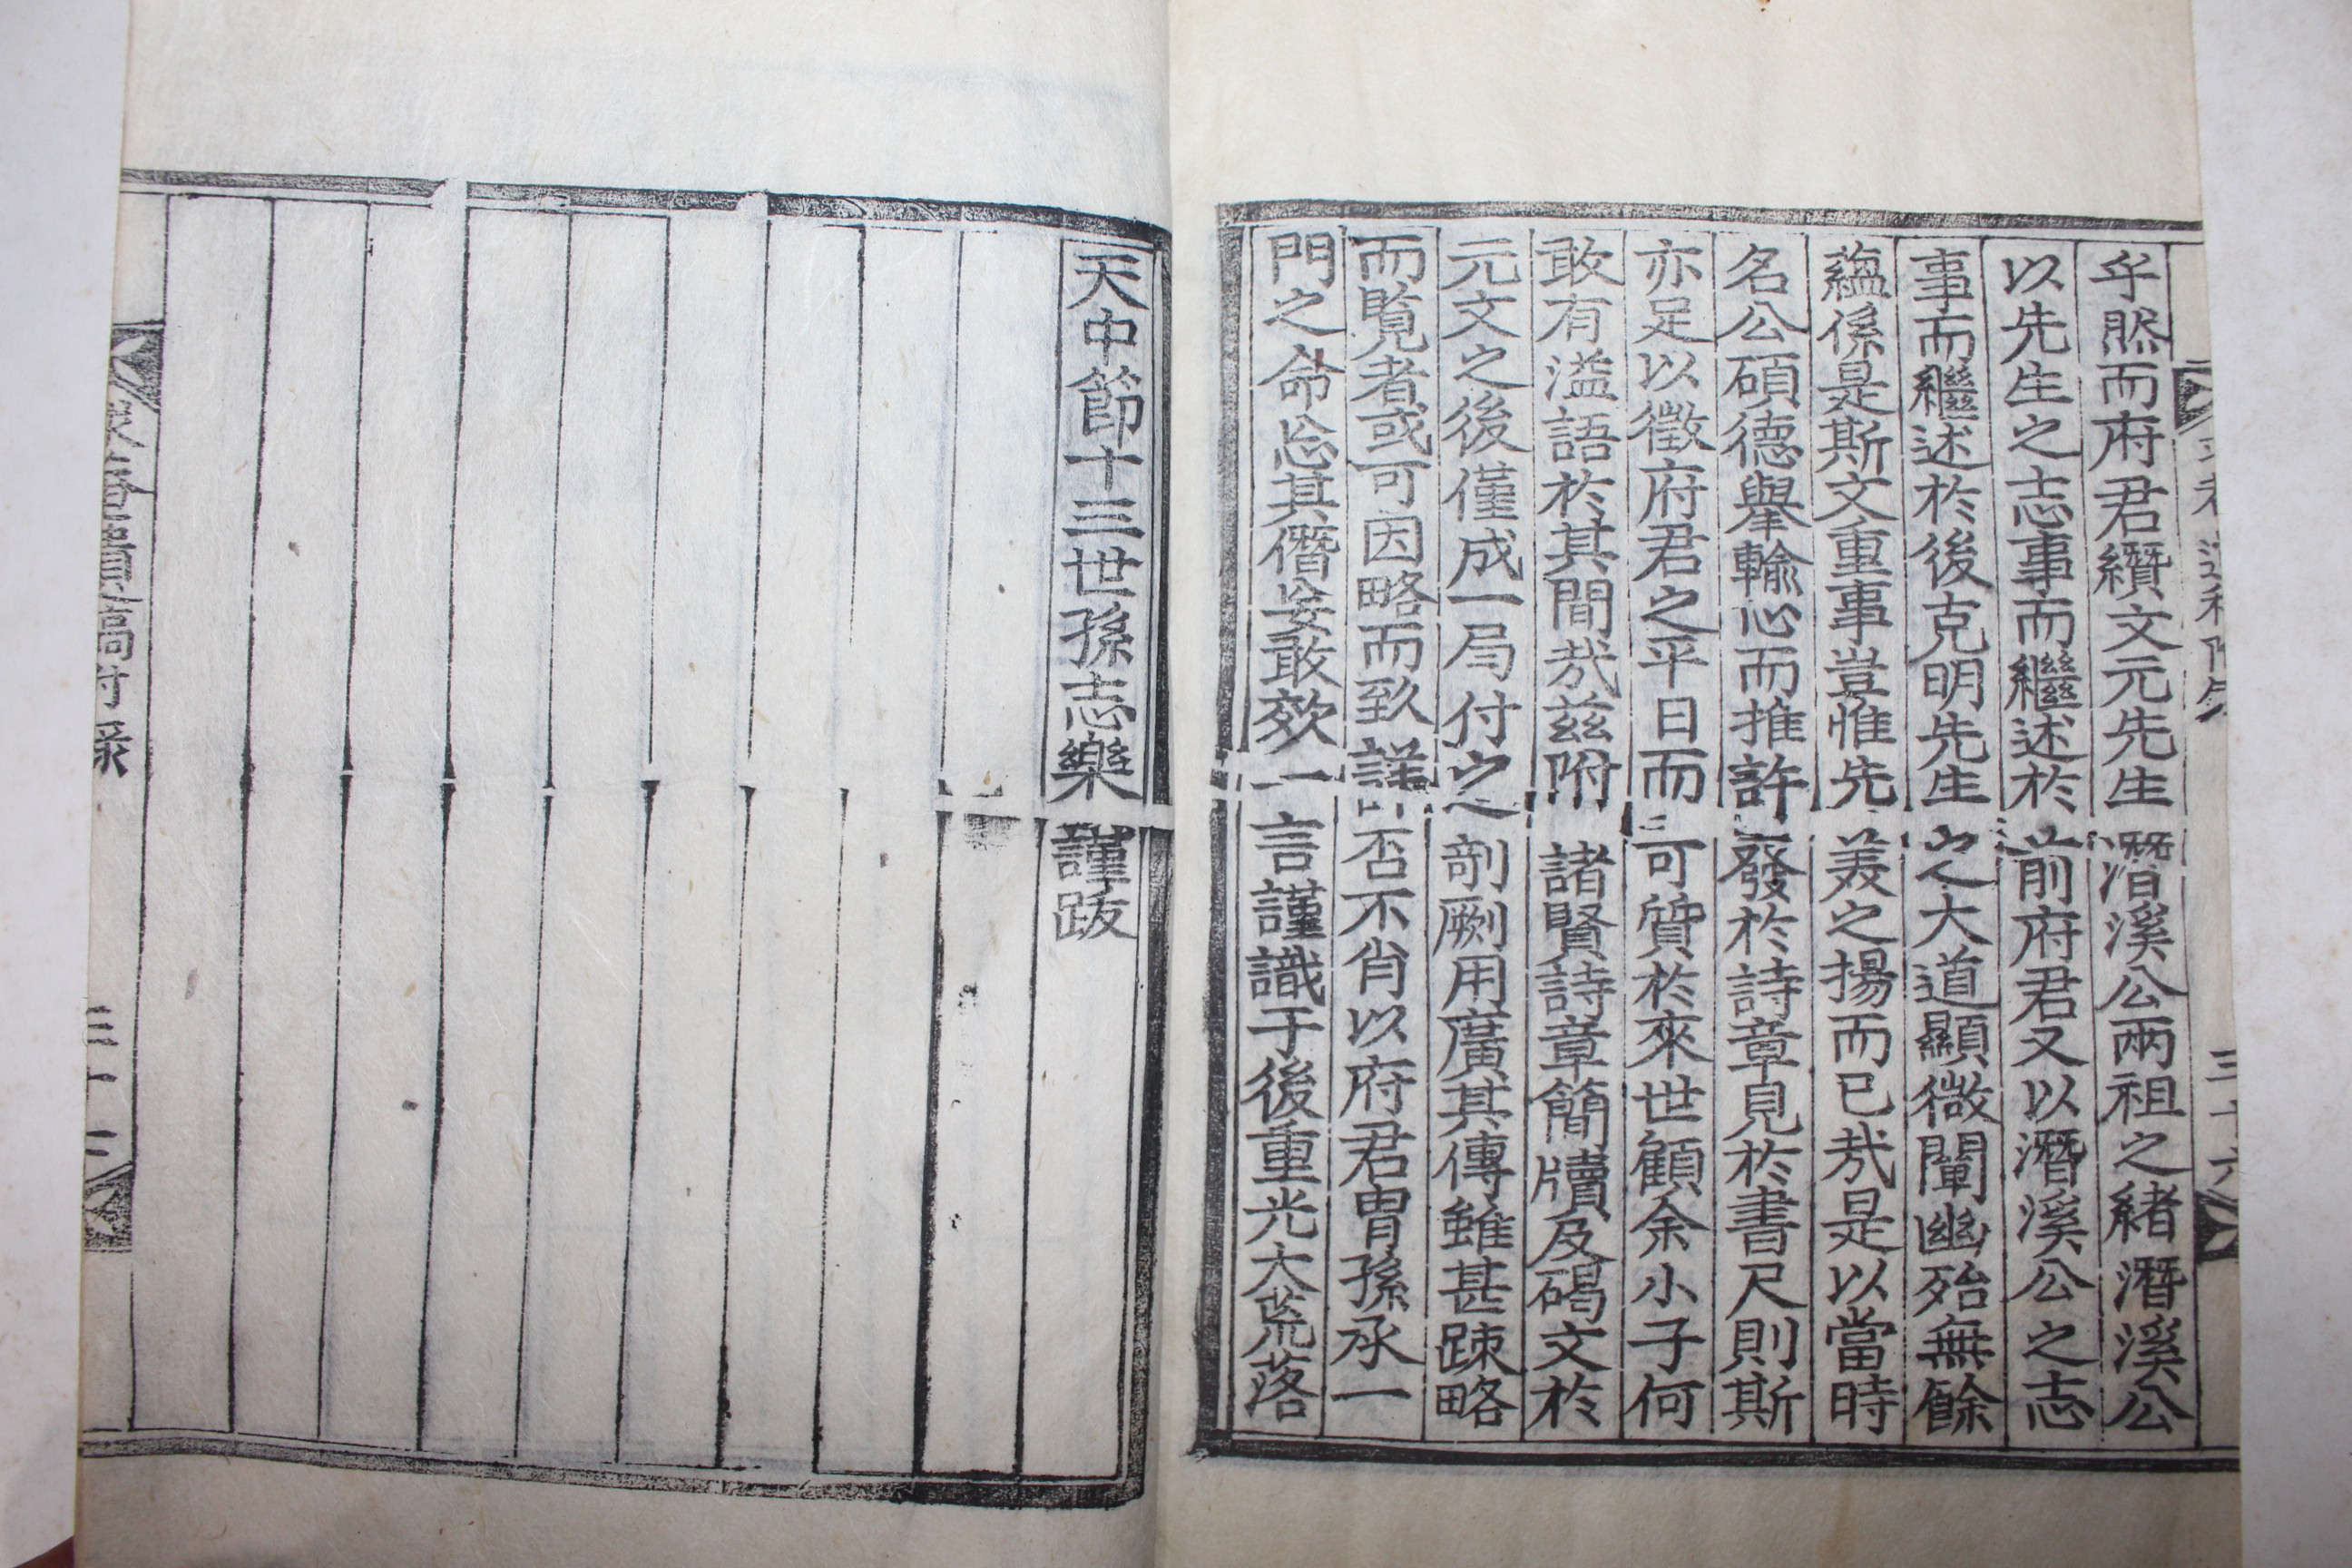 乎然而府君纘文元先生潛溪公兩祖之緒潛溪公
以先生之志事而繼述於前府君又以潛溪公之志
事而繼述於後克明先生之大道顯微闡幽殆無餘
蘊係是斯文重事豈惟先美之揚而已哉是以當時
名公碩德擧輸心而推許發於詩章見於書尺則斯
亦足以徵府君之平日而可質於來世顧余小子何
敢有溢語於其間哉玆附諸賢詩章簡牘及碣文於
元文之後僅成一局付之剞劂用廣其傳雖甚踈略
而覽者或可因略而致詳否不肖以府君胄孫承一
門之命忘其僭妄敢效一言謹識于後重光大荒落
天中節十三世孫志樂謹跋
續稿付录
三十二
三十六